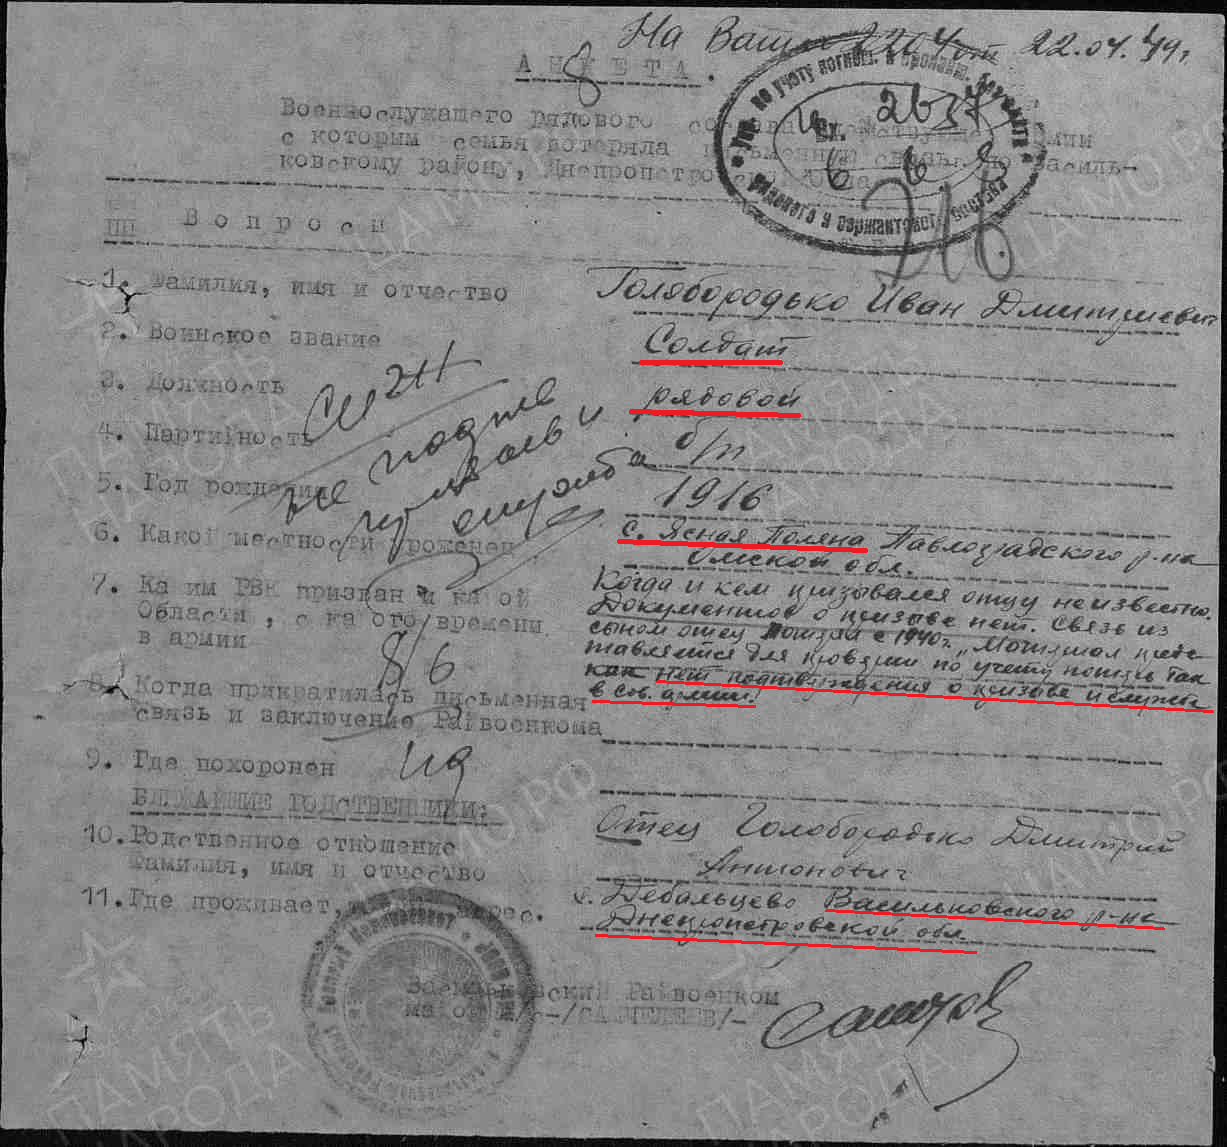 На Ваш 2204 от 22.04.49г.
АНКЕТА.
Военнослужащего рядового состава действующей армии
с которым семья потеряла письменную связь по Василь-
ковскому району, Днепропетровской
Упр. по учету погибш. и пропавш.
рядового и сержантского состава
Вх.
Вопросы
1. Фамилия, имя и отчество
Голобородько Иван Дмитриевич
2. Воинское звание
Солдат
3. Должность
рядовой
4. Партийность
б/п
5. Год рождения
1916
6. Какой местности уроженец
с. Ясная Поляна Павлоградского р-на
Омской обл.
7. Ка им РВК призван и какой
Области, с ка ого времени
в армии
Когда и кем призывался отцу неизвестно.
Документов о призыве нет. Связь из
сыном отец потерял с 1940г. „Материал предс-
тавляется для проверки по учету потерь так
как нет подтверждения о призыве и службе
в сов. армии.
8. Когда прикратилась письменная
связь и заключение Райвоенкома
9. Где похоронен
БЛИЖАЙШИЕ РОДСТВЕННИКИ:
10. Родственное отношение
Фамилия, имя и отчество
Отец Голобородько Дмитрий
Антонович
11. Где проживает,
с. Дебальцево Васильковского р-на
Днепропетровской обл.
не подтв
службa
Васильковский Райвоенком
майор